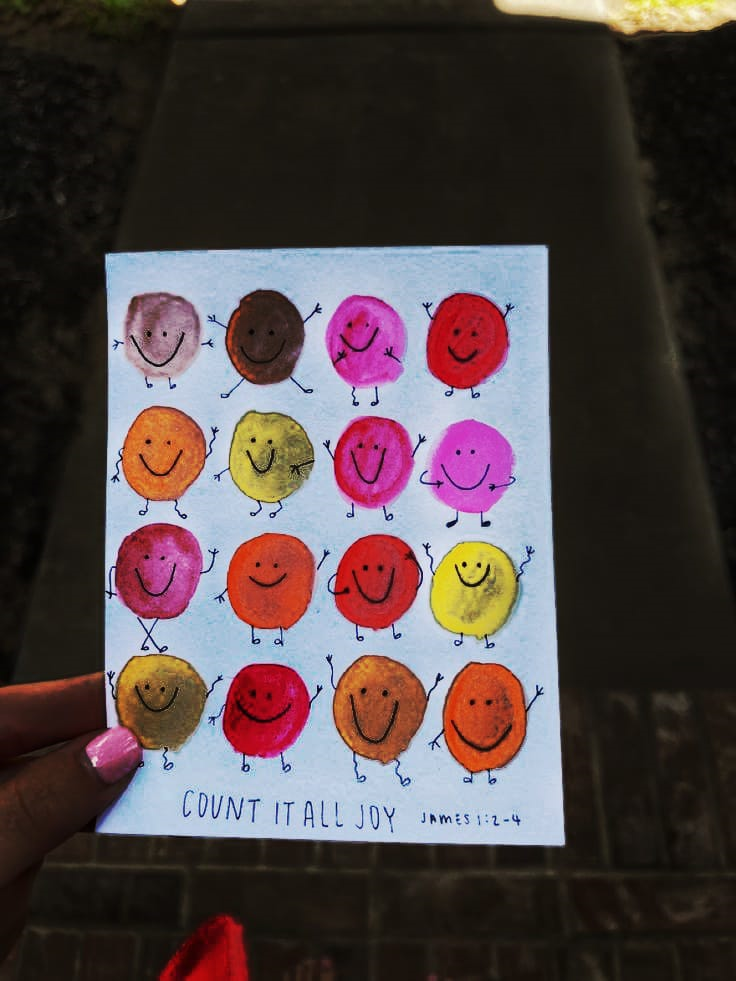 COUNT IT ALL JOY JAMES 1:2-4